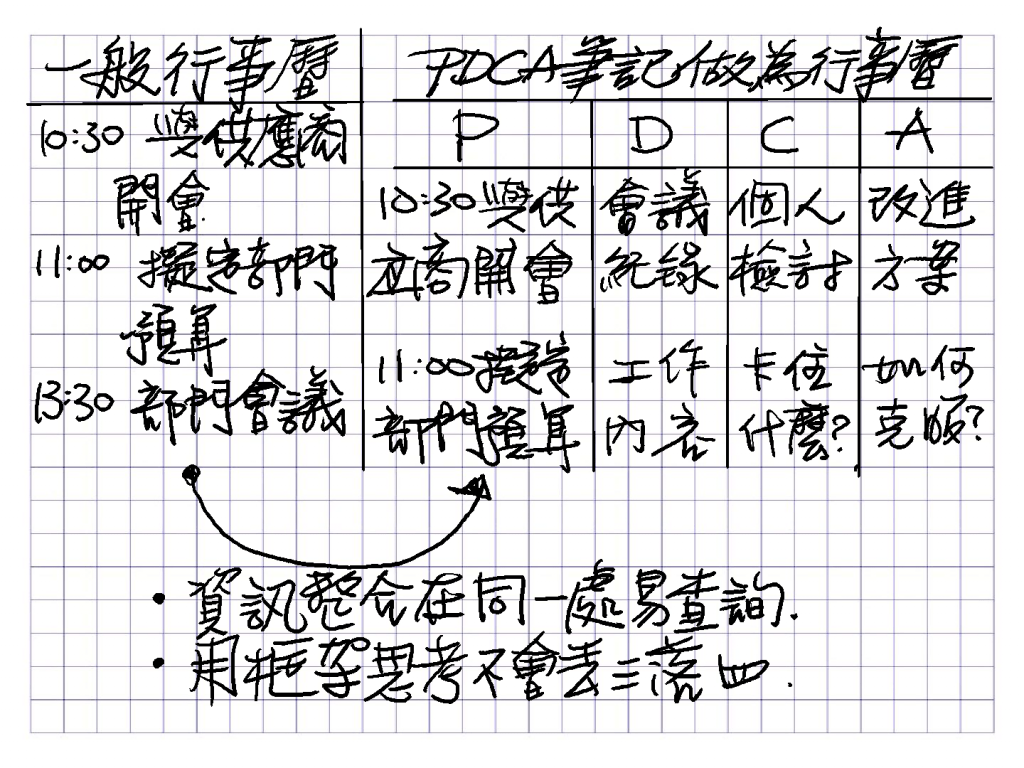 一般行事曆
10:30 與供應商
開會
11:00 擬定部門
預算
13:30 部門會議
PDCA筆記做為行事曆
P D C A
10:30與供 會議 個人 改進
应商開會 紀錄 檢討 方案
11:00擬定 工作 卡住 如何
部門預算 內容 什麼? 克服?
• 資訊整合在同一處易查詢.
• 用框架思考不會丟三落四.